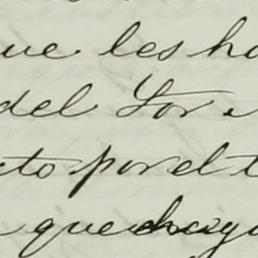 ue les ha
del Sor
to por el t
que haya